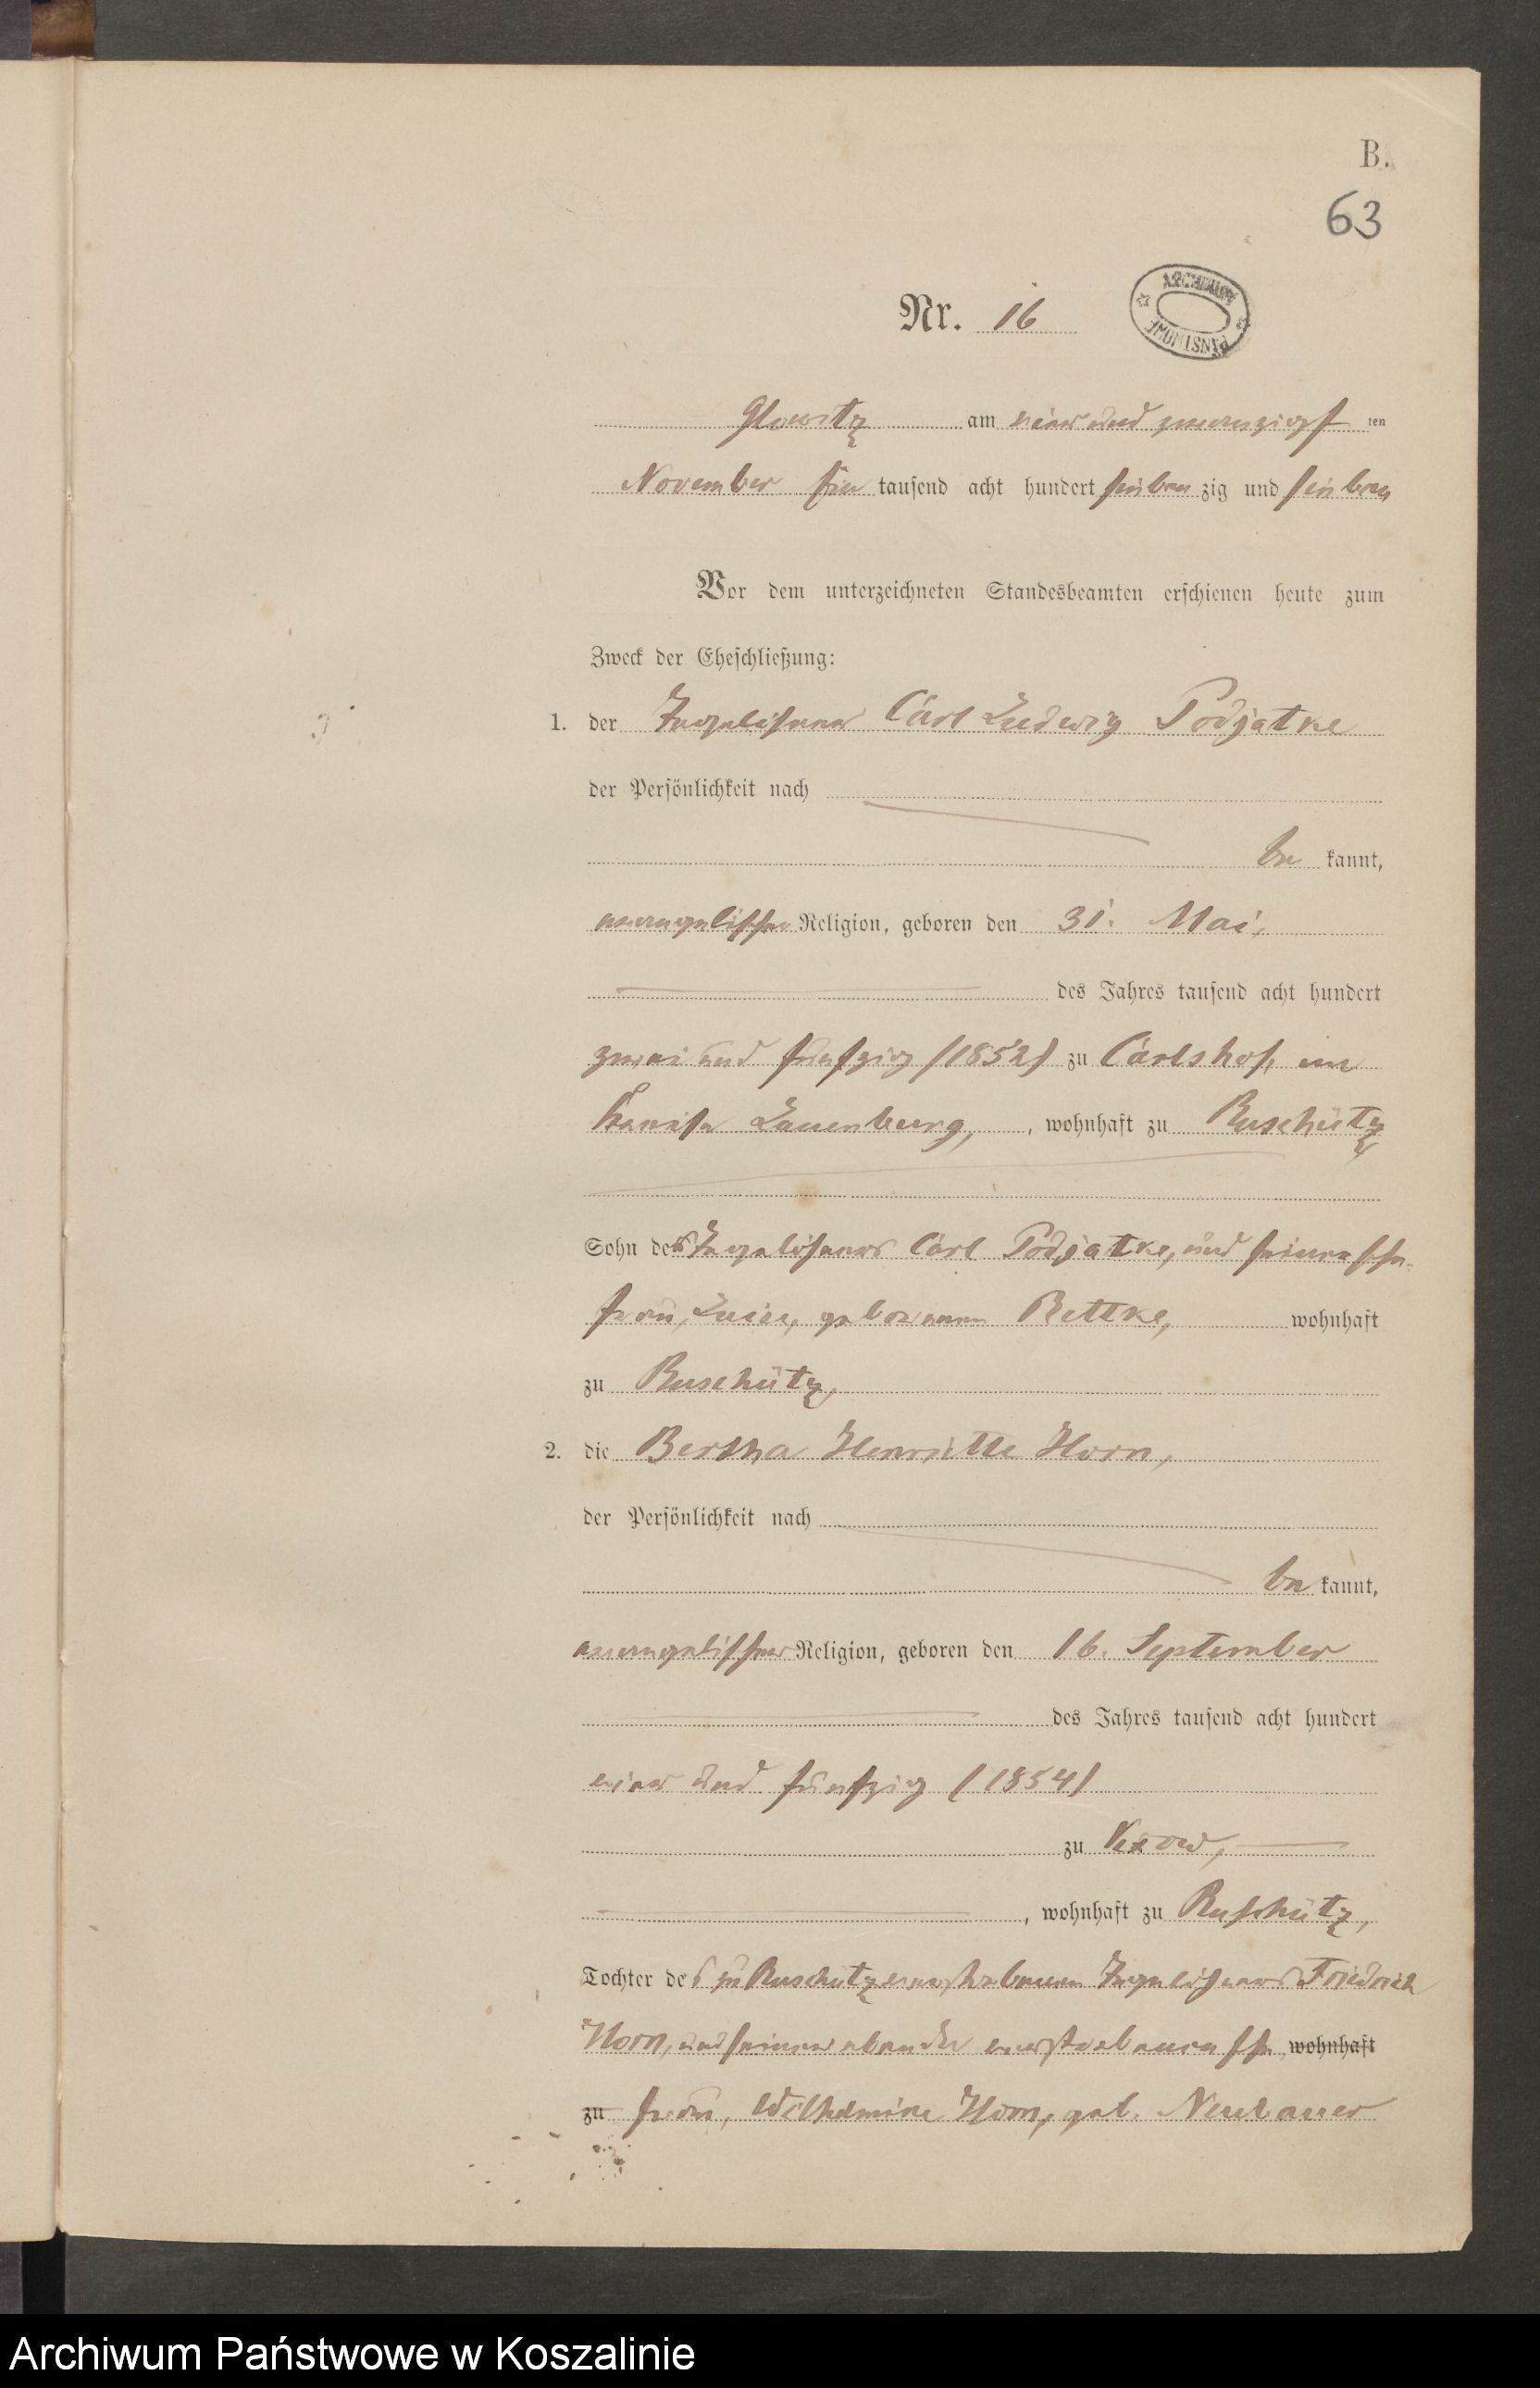 B.
63
Nr. 16
ARCHIWUM PAŃSTWOWE
Glowitz am vier und zwanzigst ten
November ein tausend acht hundert sieben zig und sieben
Vor dem unterzeichneten Standesbeamten erschienen heute zum
Zweck der Eheschließung:
1. der Tagelöhner Carl Ludwig Podjatke
der Persönlichkeit nach
be kannt,
evangelischer Religion, geboren den 31. Mai,
des Jahres tausend acht hundert
zwei und fünfzig (1852) zu Carlshof, im
Kreise Lauenburg, , wohnhaft zu Ruschütz,
Sohn des Tagelöhners Carl Podjatke, und seiner Ehe-
frau, Luise, geborenen Rettke, wohnhaft
zu Ruschütz,
2. die Bertha Henriette Horn,
der Persönlichkeit nach
be kannt,
evangelischer Religion, geboren den 16. September
des Jahres tausend acht hundert
vier und fünfzig (1854)
zu Vixow,
, wohnhaft zu Ruschütz,
Tochter des zu Ruschütz verstorbenen Tagelöhners Friedrich
Horn, und seiner ebenda verstorbenen Ehe wohnhaft
zu frau, Wilhelmine Horn, geb. Neubauer
Archiwum Państwowe w Koszalinie